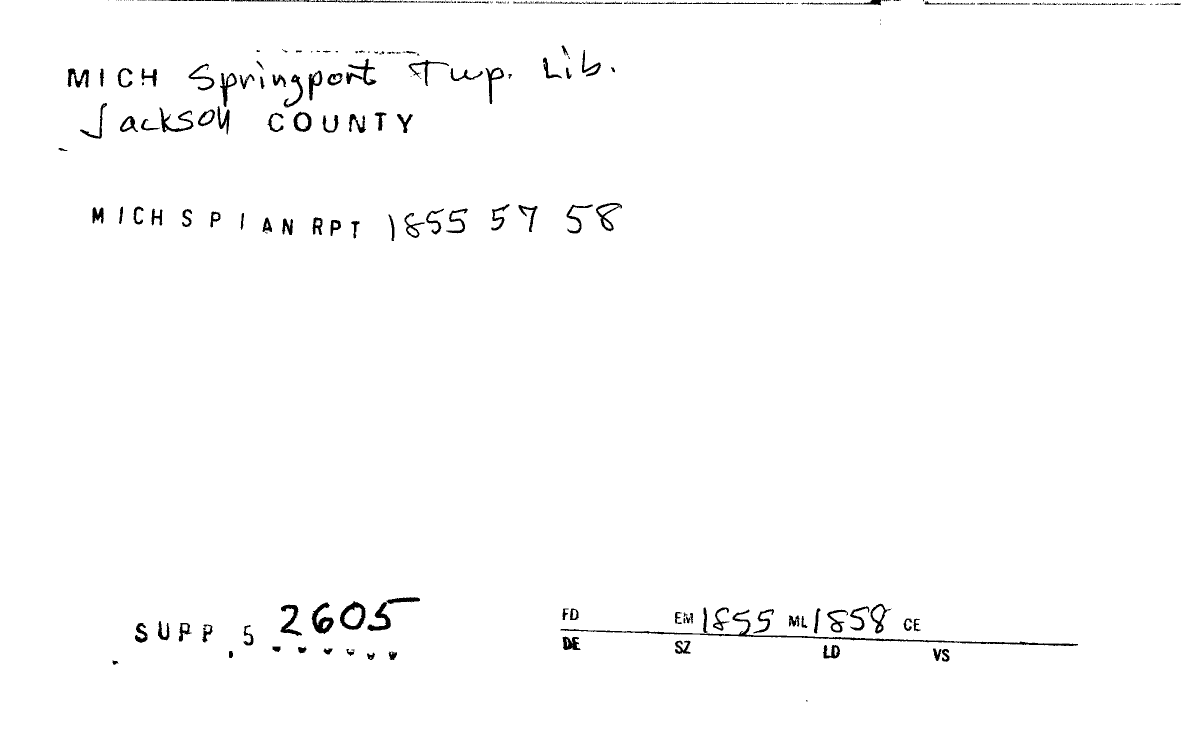 MICH Springport Twp. Lib.
Jackson COUNTY
MICH SPI AN RPT 1855 57 58
SUPP 5 2605
FD EM 1855 ML 1858 CE
DE SZ LD VS